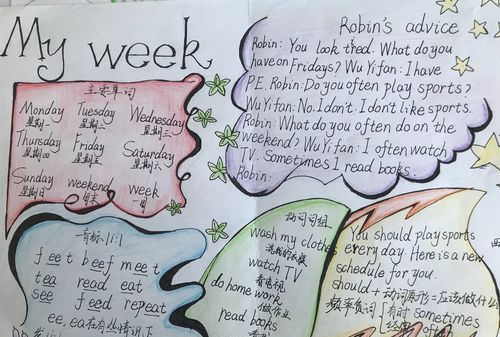 My week
主要单词
Monday Tuesday Wednesday
星期一 星期二 星期三
Thursday Friday Saturday
星期四 星期五 星期六
Sunday weekend week
星期日 周末 一周
Robin's advice
Robin: You look tired. What do you
have on Fridays? Wu Yifan: I have
P.E. Robin: Do you often play sports?
Wu Yifan: No. I don't. I don't like sports.
Robin: What do you often do on the
weekend? Wu Yifan: I often watch
TV. Sometimes I read books.
Robin:
音标 /i:/
feet beef meet
tea read eat
see feed repeat
ee, ea在有些情况下
动词词组
wash my clothes
洗我的衣服
watch TV
看电视
do homework
做作业
read books
看书
You should play sports
every day. Here is a new
schedule for you.
should + 动词原形 = 应该做什么
频率负词 有时 sometimes
经常 often